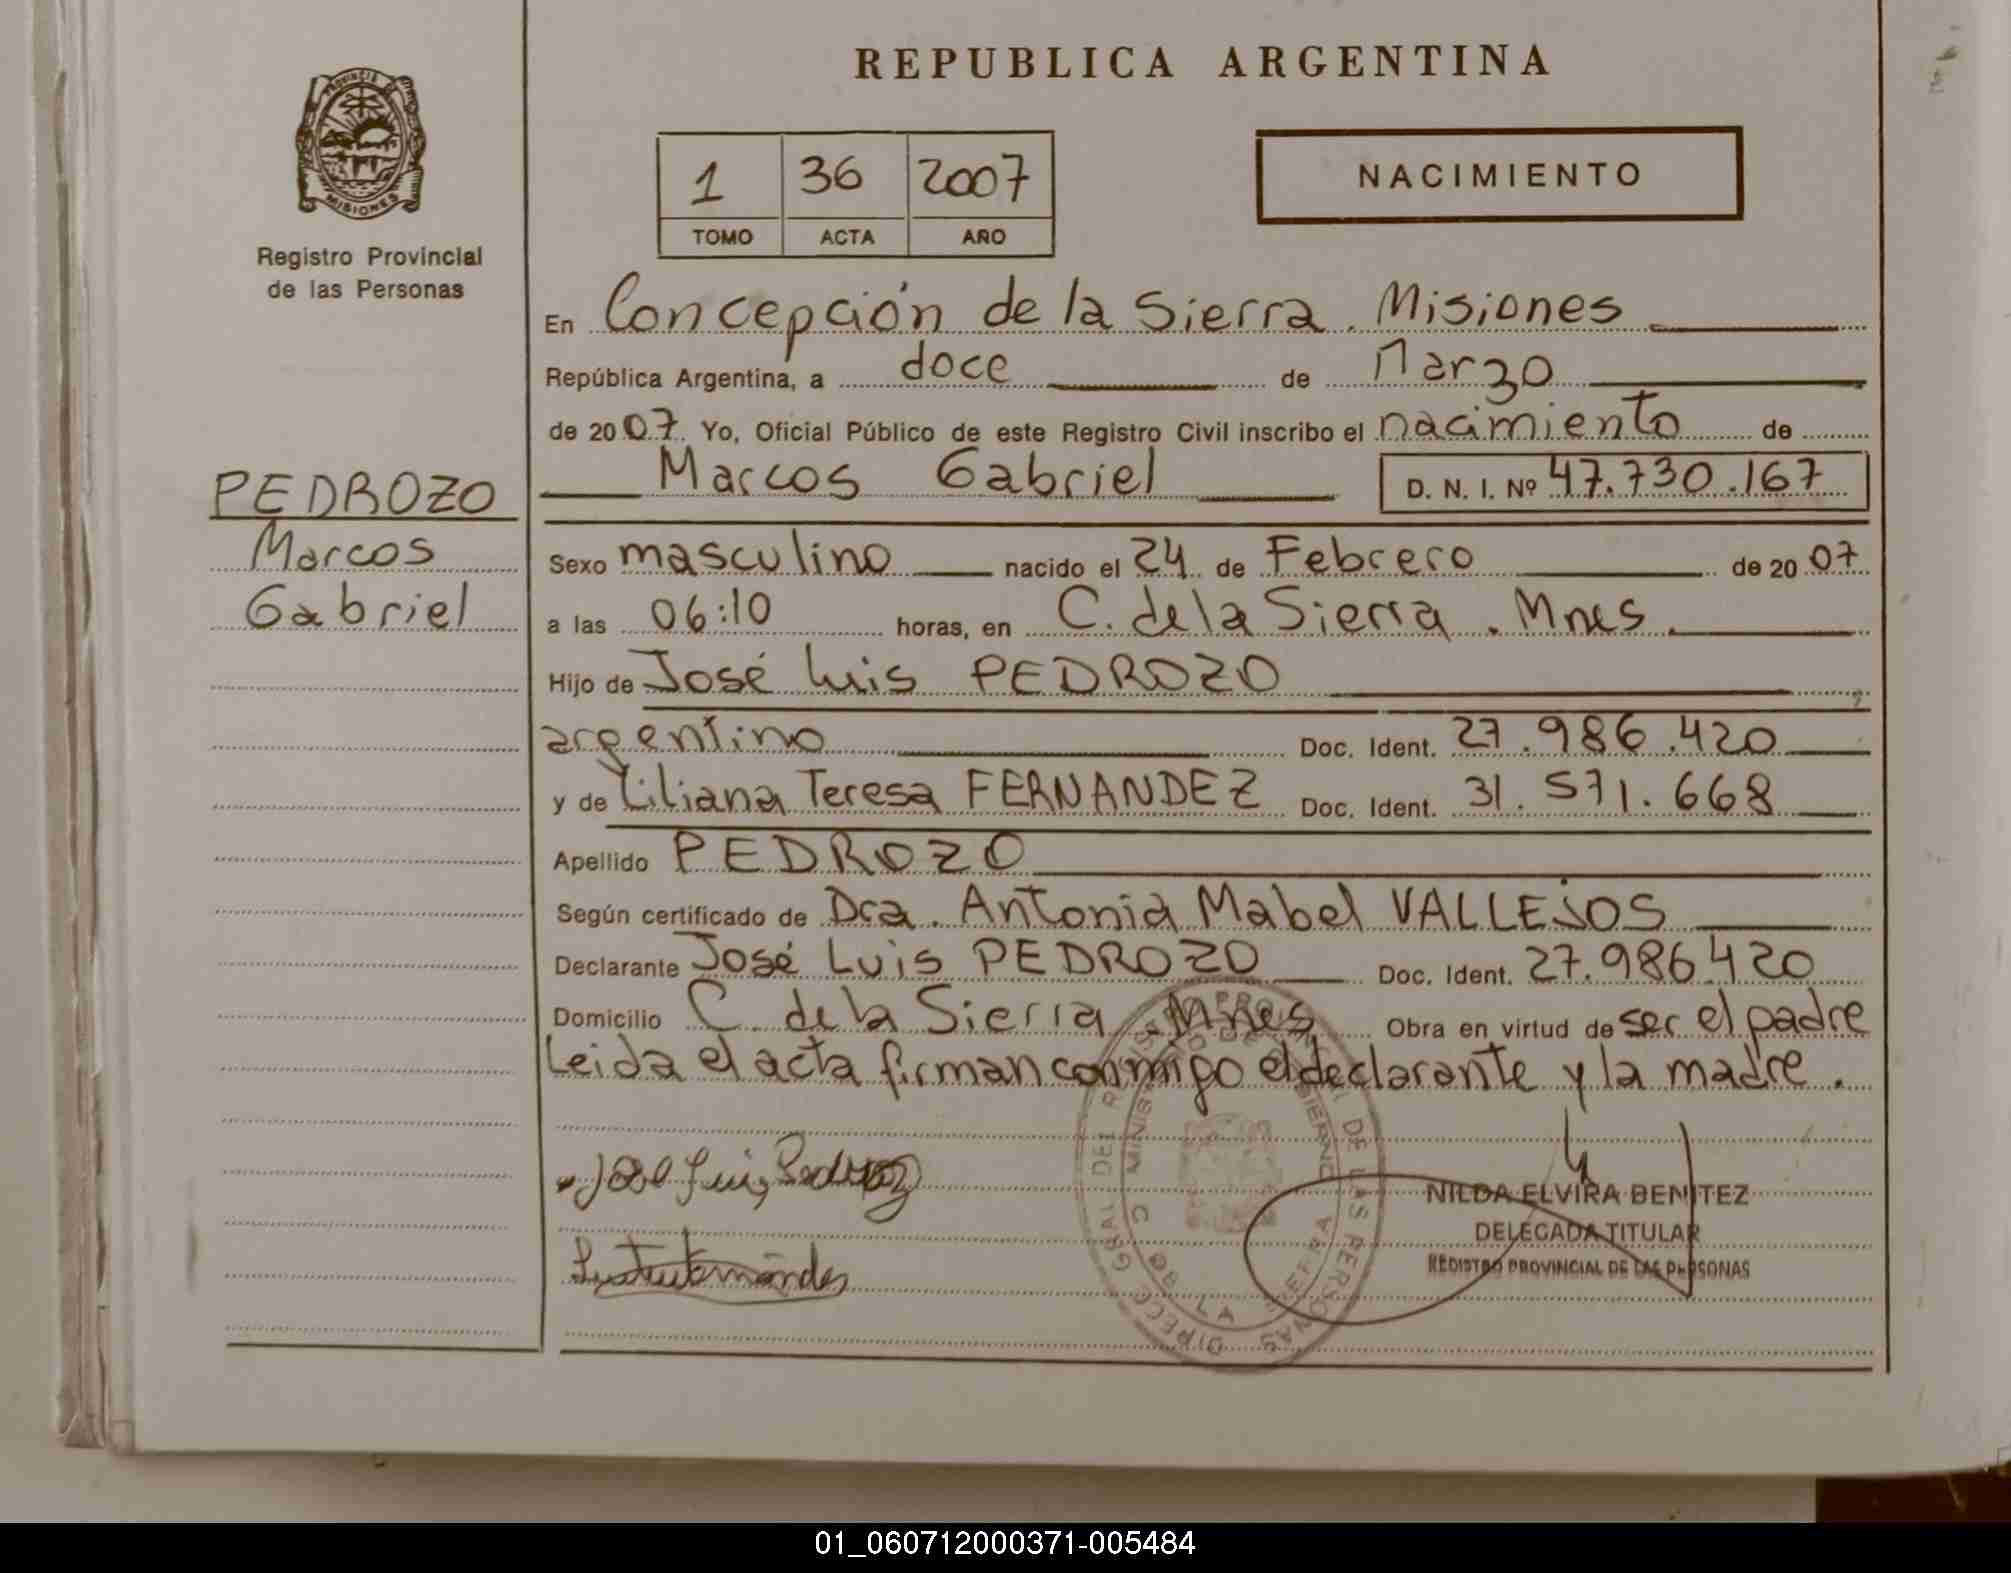 REPUBLICA ARGENTINA
PROVINCIA DE
MISIONES
Registro Provincial
de las Personas
1 36 2007
TOMO ACTA AÑO
NACIMIENTO
En Concepción de la Sierra. Misiones
República Argentina, a doce de Marzo
de 2007. Yo, Oficial Público de este Registro Civil inscribo el nacimiento de
Marcos Gabriel D. N. I. Nº 47.730.167
PEDROZO
Marcos
Gabriel
Sexo masculino nacido el 24 de Febrero de 2007
a las 06:10 horas, en C. de la Sierra. Mnes.
Hijo de José Luis PEDROZO
argentino Doc. Ident. 27.986.420
y de Liliana Teresa FERNANDEZ Doc. Ident. 31.571.668
Apellido PEDROZO
Según certificado de Dra. Antonia Mabel VALLEJOS
Declarante José Luis PEDROZO Doc. Ident. 27.986420
Domicilio C. de la Sierra Mnes Obra en virtud de ser el padre
Leida el acta firman conmigo el declarante y la madre.
NILDA ELVIRA BENITEZ
DELEGADA TITULAR
REGISTRO PROVINCIAL DE LAS PERSONAS
01_060712000371-005484